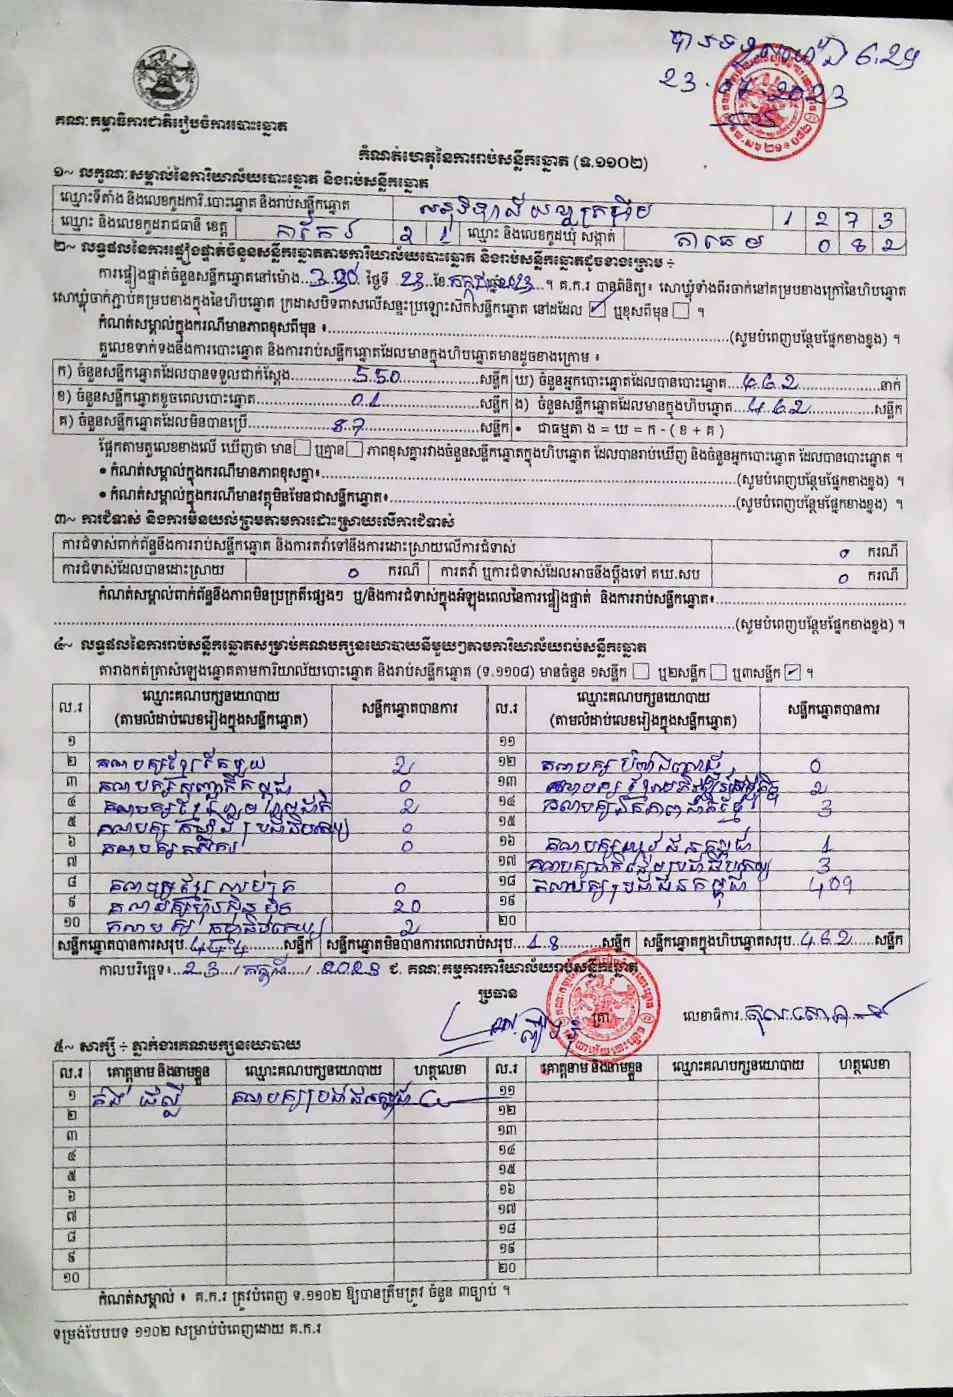 6.25
23.07.2023
គណៈកម្មាធិការជាតិរៀបចំការបោះឆ្នោត
កំណត់ហេតុនៃការរាប់សន្លឹកឆ្នោត (ទ.១១០២)
១~ លក្ខណៈសម្គាល់នៃការិយាល័យបោះឆ្នោត និងរាប់សន្លឹកឆ្នោត
ឈ្មោះទីតាំង និងលេខកូដការិ.បោះឆ្នោត និងរាប់សន្លឹកឆ្នោត 1 2 7 3
ឈ្មោះ និងលេខកូដរាជធានី ខេត្ត តាកែវ 2 1 ឈ្មោះ និងលេខកូដឃុំ សង្កាត់ 0 8 2
២~ លទ្ធផលនៃការផ្ទៀងផ្ទាត់ចំនួនសន្លឹកឆ្នោតតាមការិយាល័យបោះឆ្នោត និងរាប់សន្លឹកឆ្នោតដូចខាងក្រោម ÷
ការផ្ទៀងផ្ទាត់ចំនួនសន្លឹកឆ្នោតនៅម៉ោង ថ្ងៃទី 23 ខែ កក្កដា ឆ្នាំ 2023 ។ គ.ក.រ បានពិនិត្យ៖ សោឃ្លុំទាំងពីរចាក់នៅគម្របខាងក្រៅនៃហិបឆ្នោត
សោឃ្លុំចាក់ភ្ជាប់គម្របខាងក្នុងនៃហិបឆ្នោត ក្រដាសបិទពាសលើសន្ទះប្រឡោះស៊កសន្លឹកឆ្នោត នៅដដែល ✓ ឬខុសពីមុន ។
កំណត់សម្គាល់ក្នុងករណីមានភាពខុសពីមុន ៖ (សូមបំពេញបន្ថែមផ្នែកខាងខ្នង) ។
តួលេខទាក់ទងនឹងការបោះឆ្នោត និងការរាប់សន្លឹកឆ្នោតដែលមានក្នុងហិបឆ្នោតមានដូចខាងក្រោម ៖
ក) ចំនួនសន្លឹកឆ្នោតដែលបានទទួលជាក់ស្តែង 550 សន្លឹក ឃ) ចំនួនអ្នកបោះឆ្នោតដែលបានបោះឆ្នោត 462 នាក់
ខ) ចំនួនសន្លឹកឆ្នោតខូចពេលបោះឆ្នោត 01 សន្លឹក ង) ចំនួនសន្លឹកឆ្នោតដែលមានក្នុងហិបឆ្នោត 462 សន្លឹក
គ) ចំនួនសន្លឹកឆ្នោតដែលមិនបានប្រើ 87 សន្លឹក • ជាធម្មតា ង = ឃ = ក - ( ខ + គ )
ផ្អែកតាមតួលេខខាងលើ ឃើញថា មាន ឬគ្មាន ភាពខុសគ្នារវាងចំនួនសន្លឹកឆ្នោតក្នុងហិបឆ្នោត ដែលបានរាប់ឃើញ និងចំនួនអ្នកបោះឆ្នោត ដែលបានបោះឆ្នោត ។
• កំណត់សម្គាល់ក្នុងករណីមានភាពខុសគ្នា៖ (សូមបំពេញបន្ថែមផ្នែកខាងខ្នង) ។
• កំណត់សម្គាល់ក្នុងករណីមានវត្ថុមិនមែនជាសន្លឹកឆ្នោត៖ (សូមបំពេញបន្ថែមផ្នែកខាងខ្នង) ។
៣~ ការជំទាស់ និងការមិនយល់ព្រមតាមការដោះស្រាយលើការជំទាស់
ការជំទាស់ពាក់ព័ន្ធនឹងការរាប់សន្លឹកឆ្នោត និងការតវ៉ាទៅនឹងការដោះស្រាយលើការជំទាស់ 0 ករណី
ការជំទាស់ដែលបានដោះស្រាយ 0 ករណី ការតវ៉ា ឬការជំទាស់ដែលអាចនឹងប្តឹងទៅ គឃ.សប 0 ករណី
កំណត់សម្គាល់ពាក់ព័ន្ធនឹងភាពមិនប្រក្រតីផ្សេងៗ ឬ/និងការជំទាស់ក្នុងអំឡុងពេលនៃការផ្ទៀងផ្ទាត់ និងការរាប់សន្លឹកឆ្នោត៖
(សូមបំពេញបន្ថែមផ្នែកខាងខ្នង) ។
៤~ លទ្ធផលនៃការរាប់សន្លឹកឆ្នោតសម្រាប់គណបក្សនយោបាយនីមួយៗតាមការិយាល័យរាប់សន្លឹកឆ្នោត
តារាងកត់ត្រាសំឡេងឆ្នោតតាមការិយាល័យបោះឆ្នោត និងរាប់សន្លឹកឆ្នោត (ទ.១១០៨) មានចំនួន ១សន្លឹក ឬ២សន្លឹក ឬ៣សន្លឹក ✓ ។
ល.រ ឈ្មោះគណបក្សនយោបាយ (តាមលំដាប់លេខរៀងក្នុងសន្លឹកឆ្នោត) សន្លឹកឆ្នោតបានការ ល.រ ឈ្មោះគណបក្សនយោបាយ (តាមលំដាប់លេខរៀងក្នុងសន្លឹកឆ្នោត) សន្លឹកឆ្នោតបានការ
១ ១១
២ គណបក្សខ្មែរតែមួយ 2 ១២ គណបក្ស 0
៣ គណបក្ស 0 ១៣ 2
៤ គណបក្សខ្មែរ 2 ១៤ គណបក្សឯកភាពជាតិខ្មែរ 3
៥ គណបក្ស ប្រជាធិបតេយ្យ 0 ១៥
៦ គណបក្សកសិករ 0 ១៦ គណបក្សយុវជនកម្ពុជា 1
៧ ១៧ គណបក្ស ប្រជាធិបតេយ្យ 3
៨ គណបក្សខ្មែរ 0 ១៨ គណបក្សប្រជាជនកម្ពុជា 409
៩ គណបក្សហ៊្វុនស៊ិនប៉ិច 20 ១៩
១០ គណបក្ស 2 ២០
សន្លឹកឆ្នោតបានការសរុប 444 សន្លឹក សន្លឹកឆ្នោតមិនបានការពេលរាប់សរុប 18 សន្លឹក សន្លឹកឆ្នោតក្នុងហិបឆ្នោតសរុប 462 សន្លឹក
កាលបរិច្ឆេទ៖ 23 / កក្កដា / 2023 ជ. គណៈកម្មការការិយាល័យរាប់សន្លឹកឆ្នោត
ប្រធាន
ត្រា លេខាធិការ
៥~ សាក្សី ÷ ភ្នាក់ងារគណបក្សនយោបាយ
ល.រ គោត្តនាម និងនាមខ្លួន ឈ្មោះគណបក្សនយោបាយ ហត្ថលេខា ល.រ គោត្តនាម និងនាមខ្លួន ឈ្មោះគណបក្សនយោបាយ ហត្ថលេខា
១ គណបក្សប្រជាជនកម្ពុជា ១១
២ ១២
៣ ១៣
៤ ១៤
៥ ១៥
៦ ១៦
៧ ១៧
៨ ១៨
៩ ១៩
១០ ២០
កំណត់សម្គាល់ ៖ គ.ក.រ ត្រូវបំពេញ ទ.១១០២ ឱ្យបានត្រឹមត្រូវ ចំនួន ៣ច្បាប់ ។
ទម្រង់បែបបទ ១១០២ សម្រាប់បំពេញដោយ គ.ក.រ